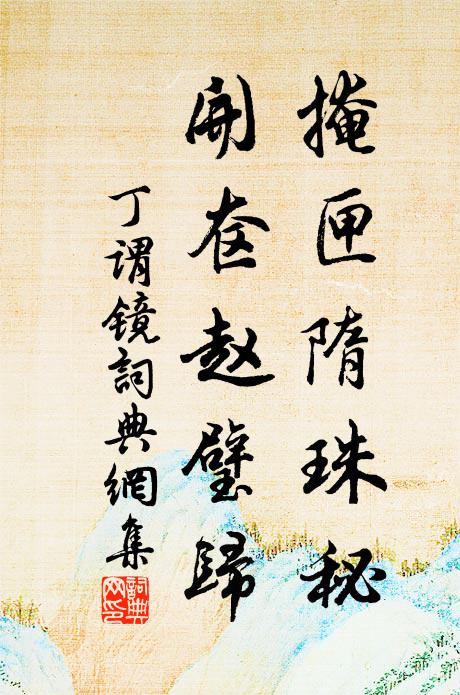 掩匣隋珠秘
開奁赵璧歸
丁谓镜詞典網集
詞典网印